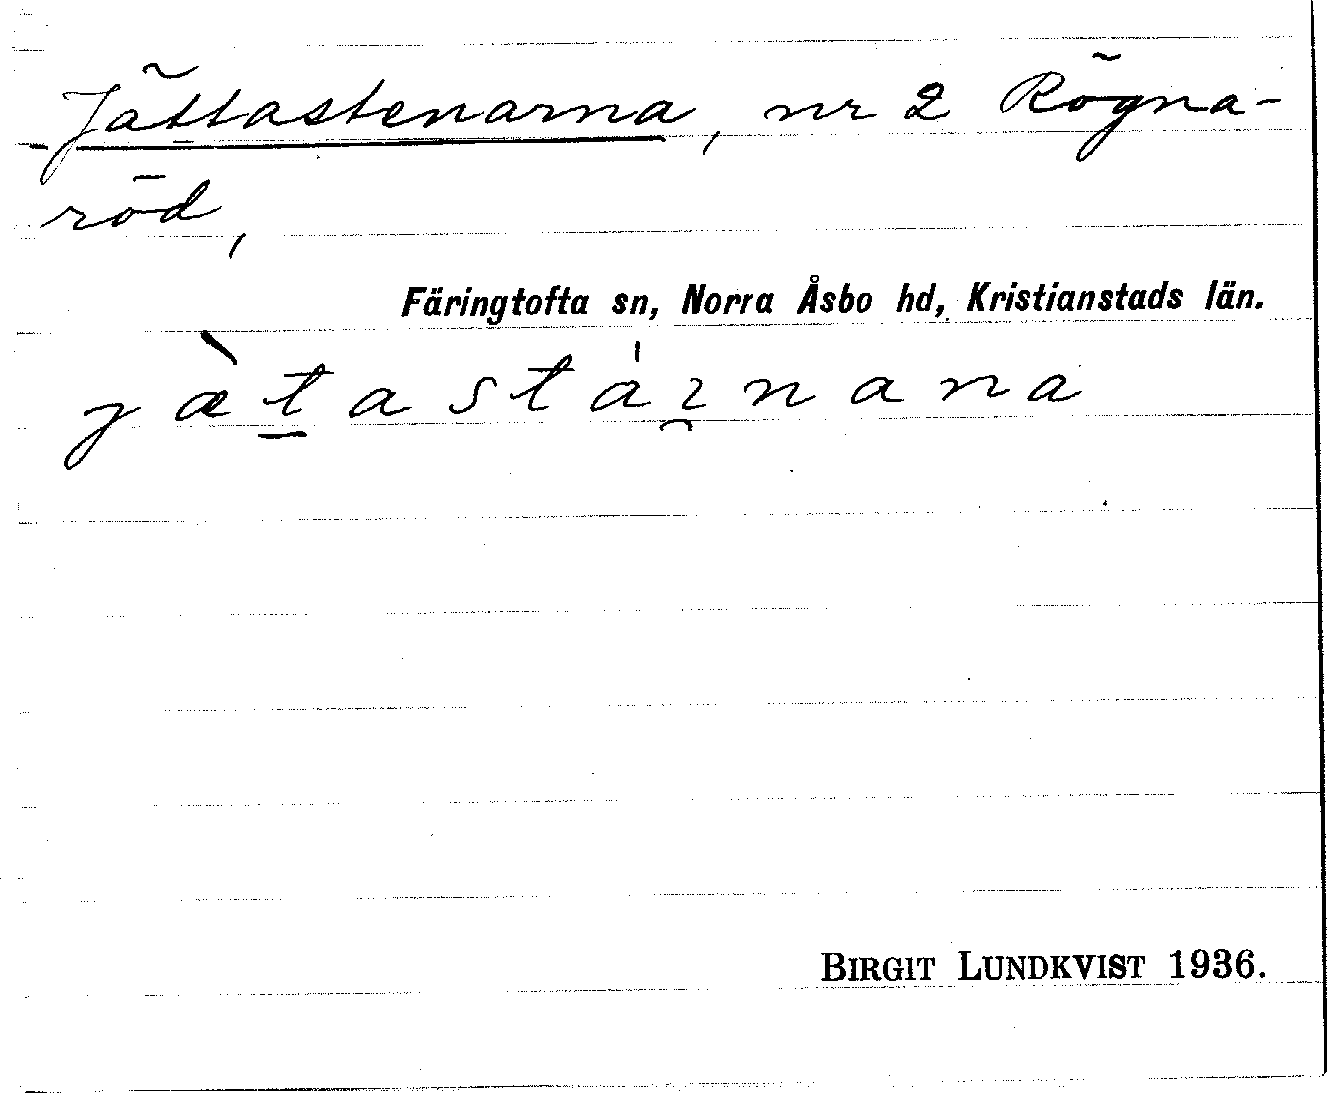 Jättastenarna, nr 2 Rögna-
röd,
Färingtofta sn, Norra Åsbo hd, Kristianstads län.
jæ̀t̠astáı̯nana
BIRGIT LUNDKVIST 1936.